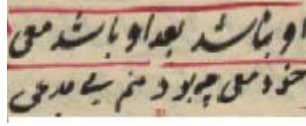 او نباشد بعد او باشد معی
خود معی چو بود منم بی مدعی